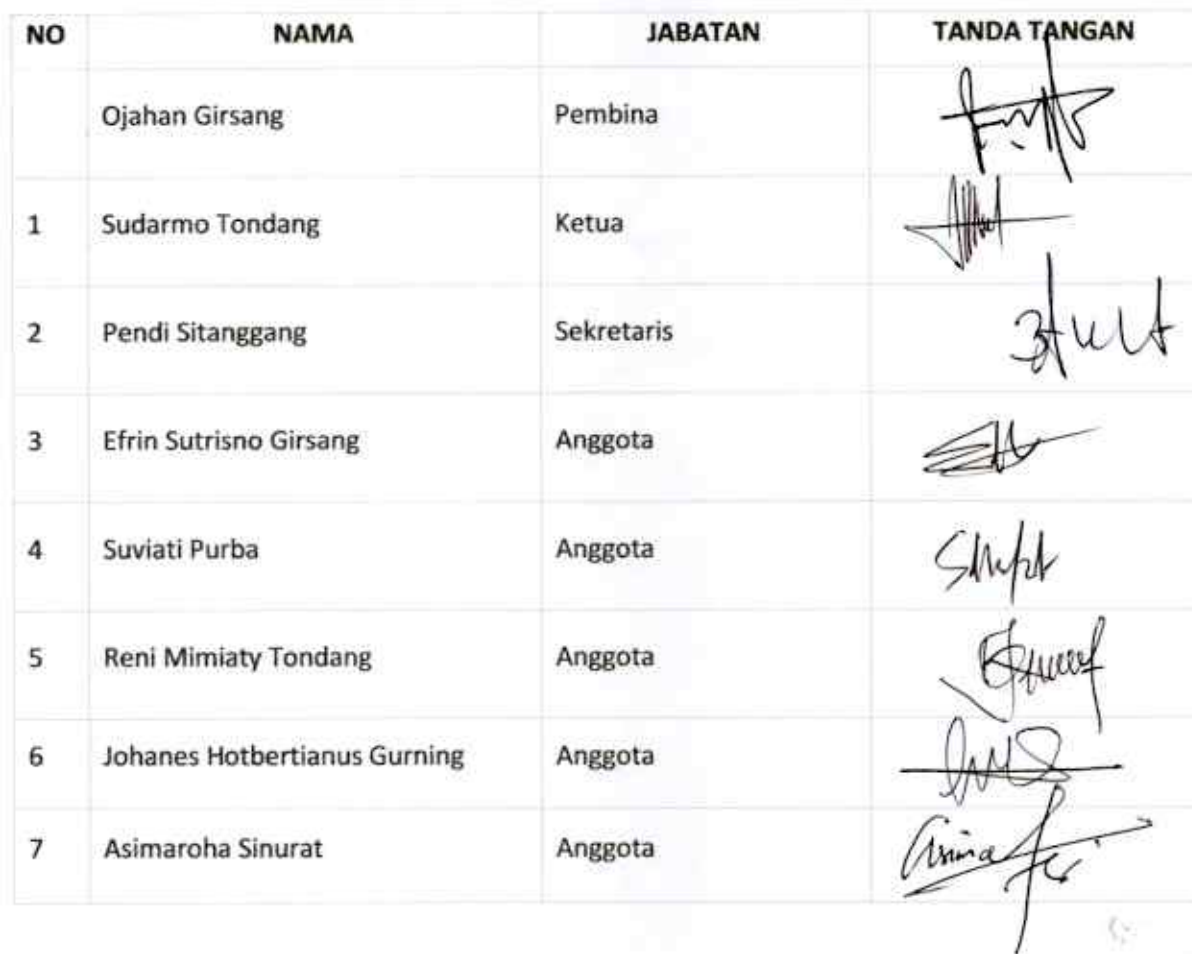 NO NAMA JABATAN TANDA TANGAN
Ojahan Girsang Pembina
1 Sudarmo Tondang Ketua
2 Pendi Sitanggang Sekretaris
3 Efrin Sutrisno Girsang Anggota
4 Suviati Purba Anggota
5 Reni Mimiaty Tondang Anggota
6 Johanes Hotbertianus Gurning Anggota
7 Asimaroha Sinurat Anggota Asima